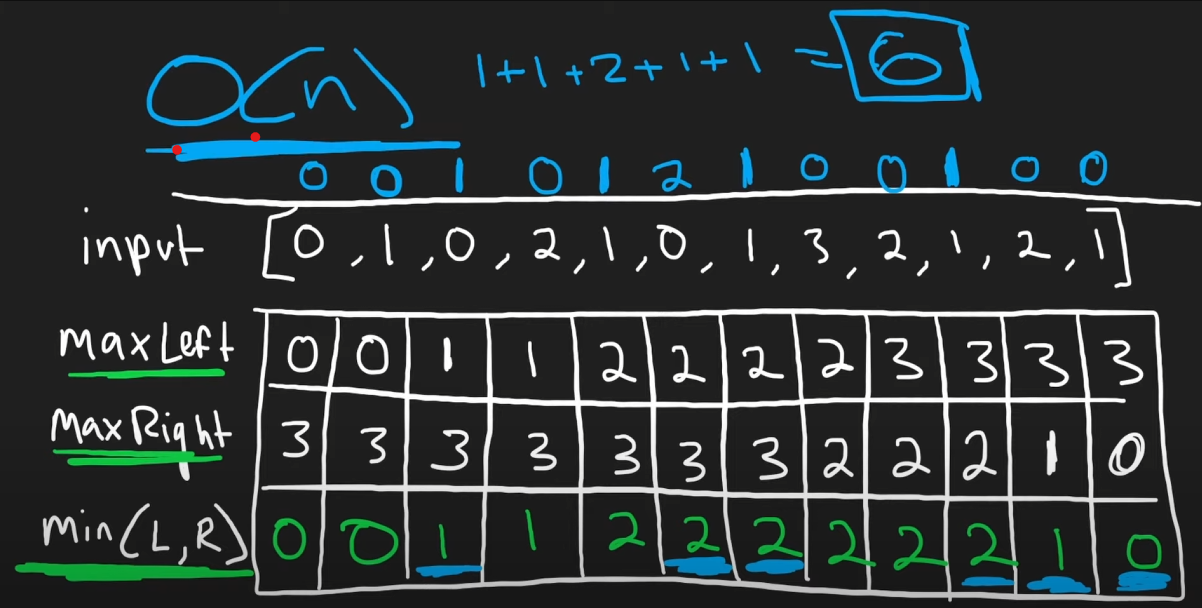 O(n) 1+1+2+1+1 = 6
0 0 1 0 1 2 1 0 0 1 0 0
input [0, 1, 0, 2, 1, 0, 1, 3, 2, 1, 2, 1]
maxLeft 0 0 1 1 2 2 2 2 3 3 3 3
MaxRight 3 3 3 3 3 3 3 2 2 2 1 0
Min(L,R) 0 0 1 1 2 2 2 2 2 2 1 0